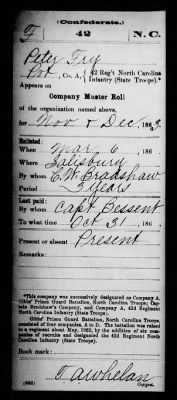 (Confederate.)
F 42 N.C.
Peter Fry
Pvt, Co. A, 42 Reg't North Carolina
Infantry (State Troops).*
Appears on
Company Muster Roll
of the organization named above,
for Nov & Dec, 1863.
Enlisted:
When Mar 6, 186
Where Salisbury
By whom C.W. Bradshaw
Period 3 years
Last paid:
By whom Capt Bessent
To what time Oct 31, 186
Present or absent Present
Remarks:
*This company was successively designated as Company A,
Gibbs' Prison Guard Battalion, North Carolina Troops; Captain
Bradshaw's Company, and Company A, 42d Regiment
North Carolina Infantry (State Troops).
Gibbs' Prison Guard Battalion, North Carolina Troops,
consisted of four companies, A to D. The battalion was raised
to a regiment about May, 1862, by the addition of six companies
of recruits and designated the 42d Regiment North
Carolina Infantry (State Troops).
Book mark:
(642) T A Whelan
Copyist.